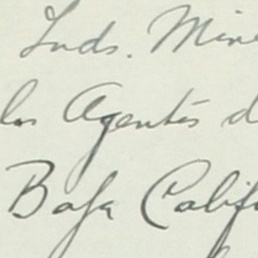 Inds. Mine
los Agentes d
Baja Califo